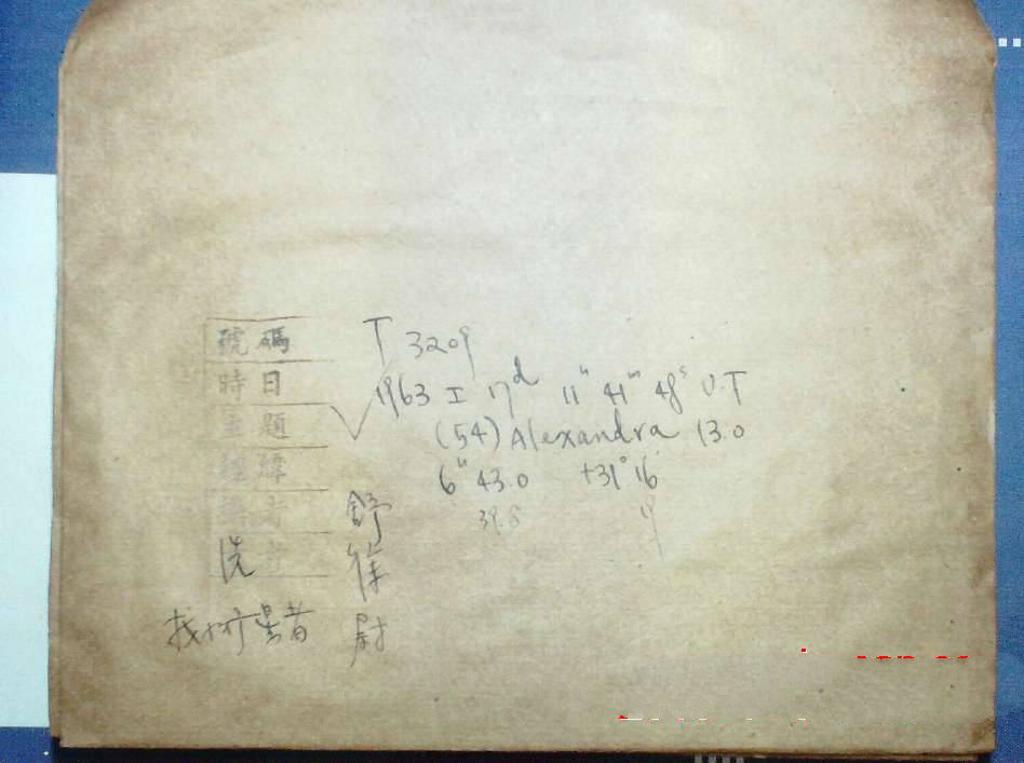 號碼 T 3209
時日 1963 I 17ᵈ 11ʰ 41ᵐ 48ˢ U.T
主題 (54) Alexandra 13.0
經緯 6ʰ 43.0 +31° 16'
39.8 19
舒
洗 徐
找 星者 尉